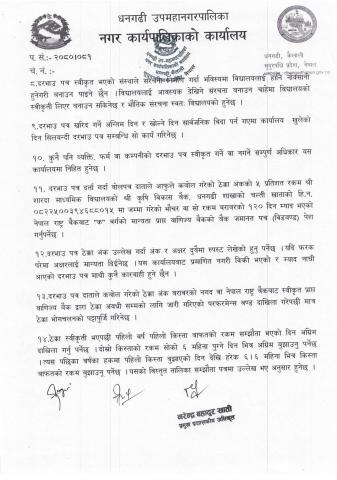 धनगढी उपमहानगरपालिका
नगर कार्यपालिकाको कार्यालय
प. सं.- २०८०।०८१
च. नं. :-
धनगढी, कैलाली
सुदूरपश्चिम प्रदेश, नेपाल
८.दरभाउ पत्र स्वीकृत भएको संस्थाले संरचना निर्माण गर्दा भविष्यमा विद्यालयलाई हानि नोक्सानी
हुनेगरी बनाउन पाइने छैन ।विद्यालयलाई आवश्यक देखिने संरचना बनाउन चाहेमा विद्यालयको
स्वीकृती लिएर बनाउन सकिनेछ र भौतिक संरचना स्वतः विद्यालयको हुनेछ ।
९.दरभाउ पत्र खरिद गर्ने अन्तिम दिन र खोल्ने दिन सार्वजनिक बिदा पर्न गएमा कार्यालय खुलेको
दिन सिलबन्दी दरभाउ पत्र सम्बन्धि सो कार्य गरिनेछ ।
१०. कुनै पनि व्यक्ति, फर्म वा कम्पनीको दरभाउ पत्र स्वीकृत गर्ने वा नगर्ने सम्पुर्ण अधिकार यस
कार्यालयमा निहित हुनेछ ।
११. दरभाउ पत्र दर्ता गर्दा बोलपत्र दाताले आफुले कबोल गरेको ठेक्का अंकको ५ प्रतिशत रकम श्री
शारदा माध्यमिक विद्यालयको श्री कृषि विकास बैंक, धनगढी शाखाको चल्ती खाताको हि.न.
मा जम्मा गरेको भौचर वा सो रकम बराबरको १२० दिन म्याद भएको
नेपाल राष्ट्र बैंकबाट "क" बर्गको मान्यता प्राप्त वाणिज्य बैंकको बैंक जमानत पत्र (बिडबण्ड) पेश
गर्नुपर्नेछ ।
१२.दरभाउ पत्र ठेक्का अंक उल्लेख गर्दा अंक र अक्षर दुवैमा स्पस्ट लेखेको हुनु पर्नेछ । यदि फरक
परेमा अक्षरलाई मान्यता दिईनेछ । यस कार्यालयबाट प्रमाणित नगरी बिक्री भएको र म्याद नाघी
आएको दरभाउ पत्र माथी कुनै कारबाही हुने छैन ।
१३.दरभाउ पत्र दाताले कबोल गरेको ठेक्का अंक बराबरको नगद वा नेपाल राष्ट्र बैंकबाट स्वीकृत प्राप्त
वाणिज्य बैंक द्वारा ठेक्का अवधी सम्मको लागि जारी गरिएको परफरमेन्स बण्ड दाखिला गरेपछी मात्र
ठेक्का भोगचलनको पट्टापुर्जि गरिनेछ ।
१४.ठेक्का स्वीकृती भएपछी पहिलो बर्ष पहिलो किस्ता वाफतको रकम सम्झौता भएको दिन अग्रिम
दाखिला गर्नु पर्नेछ । दोस्रो किस्ताको रकम सोको ६ महिना पुग्ने दिन भित्र अग्रिम बुझाउनु पर्नेछ
।त्यस पछिका बर्षका हकमा पहिलो किस्ता बुझाएको दिन देखि हरेक ६।६ महिना भित्र किस्ता
वाफतको रकम बुझाउनु पर्नेछ । यसको विस्तृत तालिका सम्झौता पत्रमा उल्लेख भए अनुसार हुनेछ ।
नरेन्द्र बहादुर खाती
प्रमुख प्रशासकीय अधिकृत